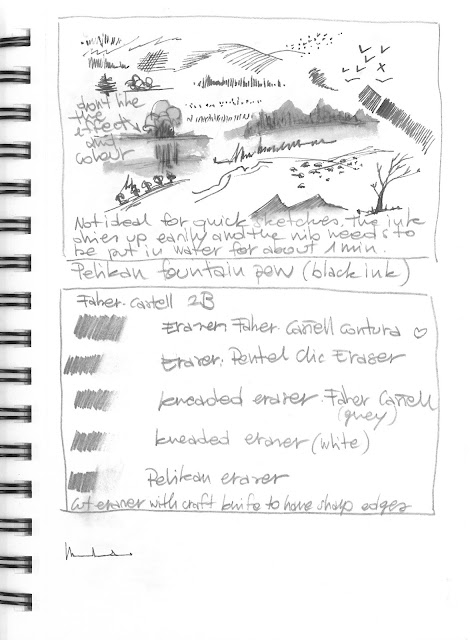 don't like
the
effect
and
colour
Not ideal for quick sketches. the ink
dries up easily and the nib needs to
be put in water for about 1 min.
Pelikan fountain pen (black ink)
Faber-Castell 2B
Eraser: Faber Castell Contura ♡
Eraser: Pentel Clic Eraser
kneaded eraser. Faber Castell
(grey)
kneaded eraser (white)
Pelikan eraser
Cut eraser with craft knife to have sharp edges